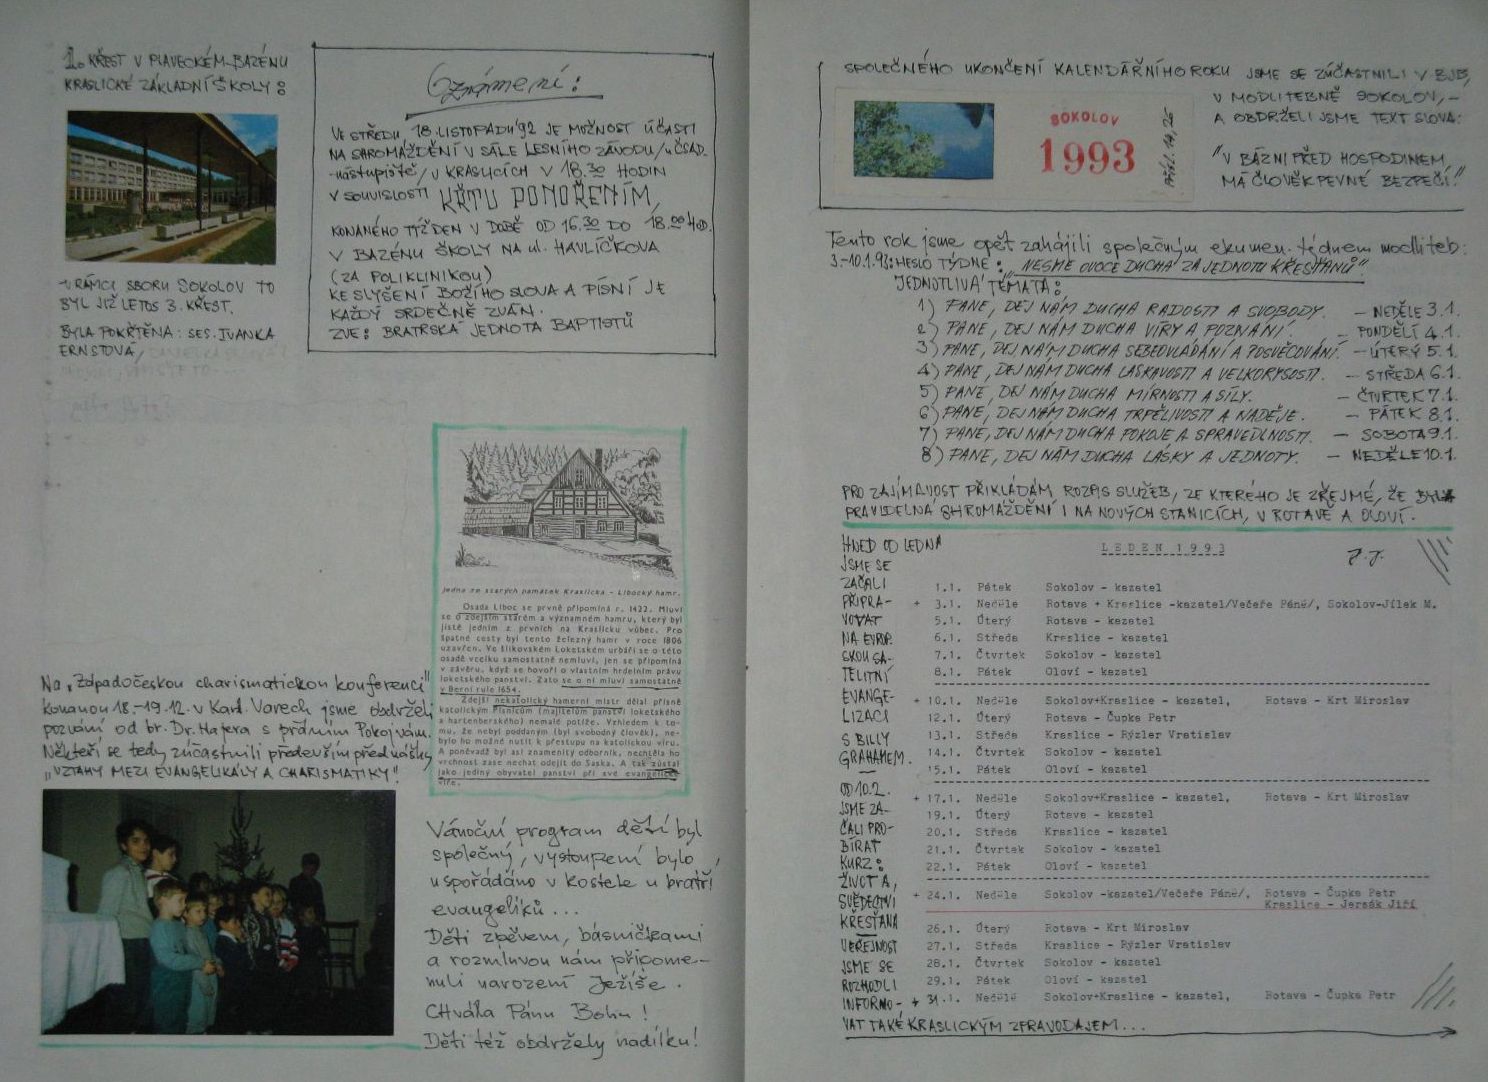 1. KŘEST V PLAVECKÉM BAZÉNU
KRASLICKÉ ZÁKLADNÍ ŠKOLY:
V RÁMCI SBORU SOKOLOV TO
BYL JIŽ LETOS 3. KŘEST.
BYLA POKŘTĚNA: SES. IVANKA
ERNSTOVÁ,
Oznámení:
VE STŘEDU, 18. LISTOPADU '92 JE MOŽNOST ÚČASTI
NA SHROMÁŽDĚNÍ V SÁLE LESNÍHO ZÁVODU/U ČSAD-
-nástupiště/, U KRASLICÍCH V 18.30 HODIN
V SOUVISLOSTI KŘTU PONOŘENÍM,
KONANÉHO TÝŽ DEN V DOBĚ OD 16.30 DO 18.00 HOD.
V BAZÉNU ŠKOLY NA ul. HAVLÍČKOVA
(ZA POLIKLINIKOU)
KE SLYŠENÍ BOŽÍHO SLOVA A PÍSNÍ JE
KAŽDÝ SRDEČNĚ ZVÁN.
ZVE: BRATRSKÁ JEDNOTA BAPTISTŮ
Jedna ze starých památek Kraslicka - Libocký hamr.
Osada Liboc se prvně připomíná r. 1422. Mluví
se o zdejším starém a významném hamru, který byl
jistě jedním z prvních na Kraslicku vůbec. Pro
špatné cesty byl tento železný hamr v roce 1806
uzavřen. Ve šlikovském Loketském urbáři se o této
osadě vcelku samostatně nemluví, jen se připomíná
v závěru, když se hovoří o vlastním hrdelním právu
loketského panství. Zato se o ní mluví samostatně
v Berní rule 1654.
Zdejší nekatolický hamerní mistr dělal přísně
katolickým Písnicům (majitelům panství loketského
a hartenberského) nemalé potíže. Vzhledem k to-
mu, že nebyl poddaným (byl svobodný člověk), ne-
bylo ho možné nutit k přestupu na katolickou víru.
A poněvadž byl asi znamenitý odborník, nechtěla ho
vrchnost zase nechat odejít do Saska. A tak zůstal
jako jediný obyvatel panství při své evangelické
víře.
Na „Západočeskou charismatickou konferenci"
konanou 18.-19.12. v Karl. Varech jsme obdrželi
pozvání od br. Dr. Hajera s přáním Pokoj vám.
Někteří se tedy zúčastnili především přednášky
„VZTAHY MEZI EVANGELIKÁLY A CHARISMATIKY".
Vánoční program dětí byl
společný, vystoupení bylo
uspořádáno v kostele u bratří
evangelíků...
Děti zpěvem, básničkami
a rozmluvou nám připome-
nuli narození Ježíše.
Chvála Pánu Bohu!
Děti též obdržely nadílku!
SPOLEČNÉHO UKONČENÍ KALENDÁŘNÍHO ROKU JSME SE ZÚČASTNILI V BJB,
V MODLITEBNĚ SOKOLOV, -
A OBDRŽELI JSME TEXT SLOVA:
"V BÁZNI PŘED HOSPODINEM
MÁ ČLOVĚK PEVNÉ BEZPEČÍ."
SOKOLOV
1993
Přísl. 14,26
Tento rok jsme opět zahájili společným ekumen. týdnem modliteb:
3.-10.1.93: HESLO TÝDNE: „NESME OVOCE DUCHA ZA JEDNOTU KŘESŤANŮ".
JEDNOTLIVÁ TÉMATA:
1) PANE, DEJ NÁM DUCHA RADOSTI A SVOBODY. - NEDĚLE 3.1.
2) PANE, DEJ NÁM DUCHA VÍRY A POZNÁNÍ. - PONDĚLÍ 4.1.
3) PANE, DEJ NÁM DUCHA SEBEOVLÁDÁNÍ A POSVĚCOVÁNÍ. - ÚTERÝ 5.1.
4) PANE, DEJ NÁM DUCHA LASKAVOSTI A VELKORYSOSTI. - STŘEDA 6.1.
5) PANE, DEJ NÁM DUCHA MÍRNOSTI A SÍLY. - ČTVRTEK 7.1.
6) PANE, DEJ NÁM DUCHA TRPĚLIVOSTI A NADĚJE. - PÁTEK 8.1.
7) PANE, DEJ NÁM DUCHA POKOJE A SPRAVEDLNOSTI. - SOBOTA 9.1.
8) PANE, DEJ NÁM DUCHA LÁSKY A JEDNOTY. - NEDĚLE 10.1.
PRO ZAJÍMAVOST PŘIKLÁDÁM ROZPIS SLUŽEB, ZE KTERÉHO JE ZŘEJMÉ, ŽE BYLA
PRAVIDELNÁ SHROMÁŽDĚNÍ I NA NOVÝCH STANICÍCH, V ROTAVĚ A OLOVÍ.
HNED OD LEDNA
JSME SE
ZAČALI
PŘIPRA-
VOVAT
NA EVROP.
SKOU SA-
TELITNÍ
EVANGE-
LIZACI
S BILLY
GRAHAMEM.
OD 10.2.
JSME ZA-
ČALI PRO-
BÍRAT
KURZ:
ŽIVOT A
SVĚDECTVÍ
KŘESŤANA
VEŘEJNOST
JSME SE
ROZHODLI
INFORMO-
VAT TAKÉ KRASLICKÝM ZPRAVODAJEM...
LEDEN 1993
J. J.
1.1. Pátek Sokolov - kazatel
+ 3.1. Neděle Rotava + Kraslice -kazatel/Večeře Páně/, Sokolov-Jílek M.
5.1. Úterý Rotava - kazatel
6.1. Středa Kraslice - kazatel
7.1. Čtvrtek Sokolov - kazatel
8.1. Pátek Oloví - kazatel
+ 10.1. Neděle Sokolov+Kraslice - kazatel, Rotava - Krt Miroslav
12.1. Úterý Rotava - Čupka Petr
13.1. Středa Kraslice - Rýzler Vratislav
14.1. Čtvrtek Sokolov - kazatel
15.1. Pátek Oloví - kazatel
+ 17.1. Neděle Sokolov+Kraslice - kazatel, Rotava - Krt Miroslav
19.1. Úterý Rotava - kazatel
20.1. Středa Kraslice - kazatel
21.1. Čtvrtek Sokolov - kazatel
22.1. Pátek Oloví - kazatel
+ 24.1. Neděle Sokolov -kazatel/Večeře Páně/, Rotava - Čupka Petr
Kraslice - Jersák Jiří
26.1. Úterý Rotava - Krt Miroslav
27.1. Středa Kraslice - Rýzler Vratislav
28.1. Čtvrtek Sokolov - kazatel
29.1. Pátek Oloví - kazatel
+ 31.1. Neděle Sokolov+Kraslice - kazatel, Rotava - Čupka Petr